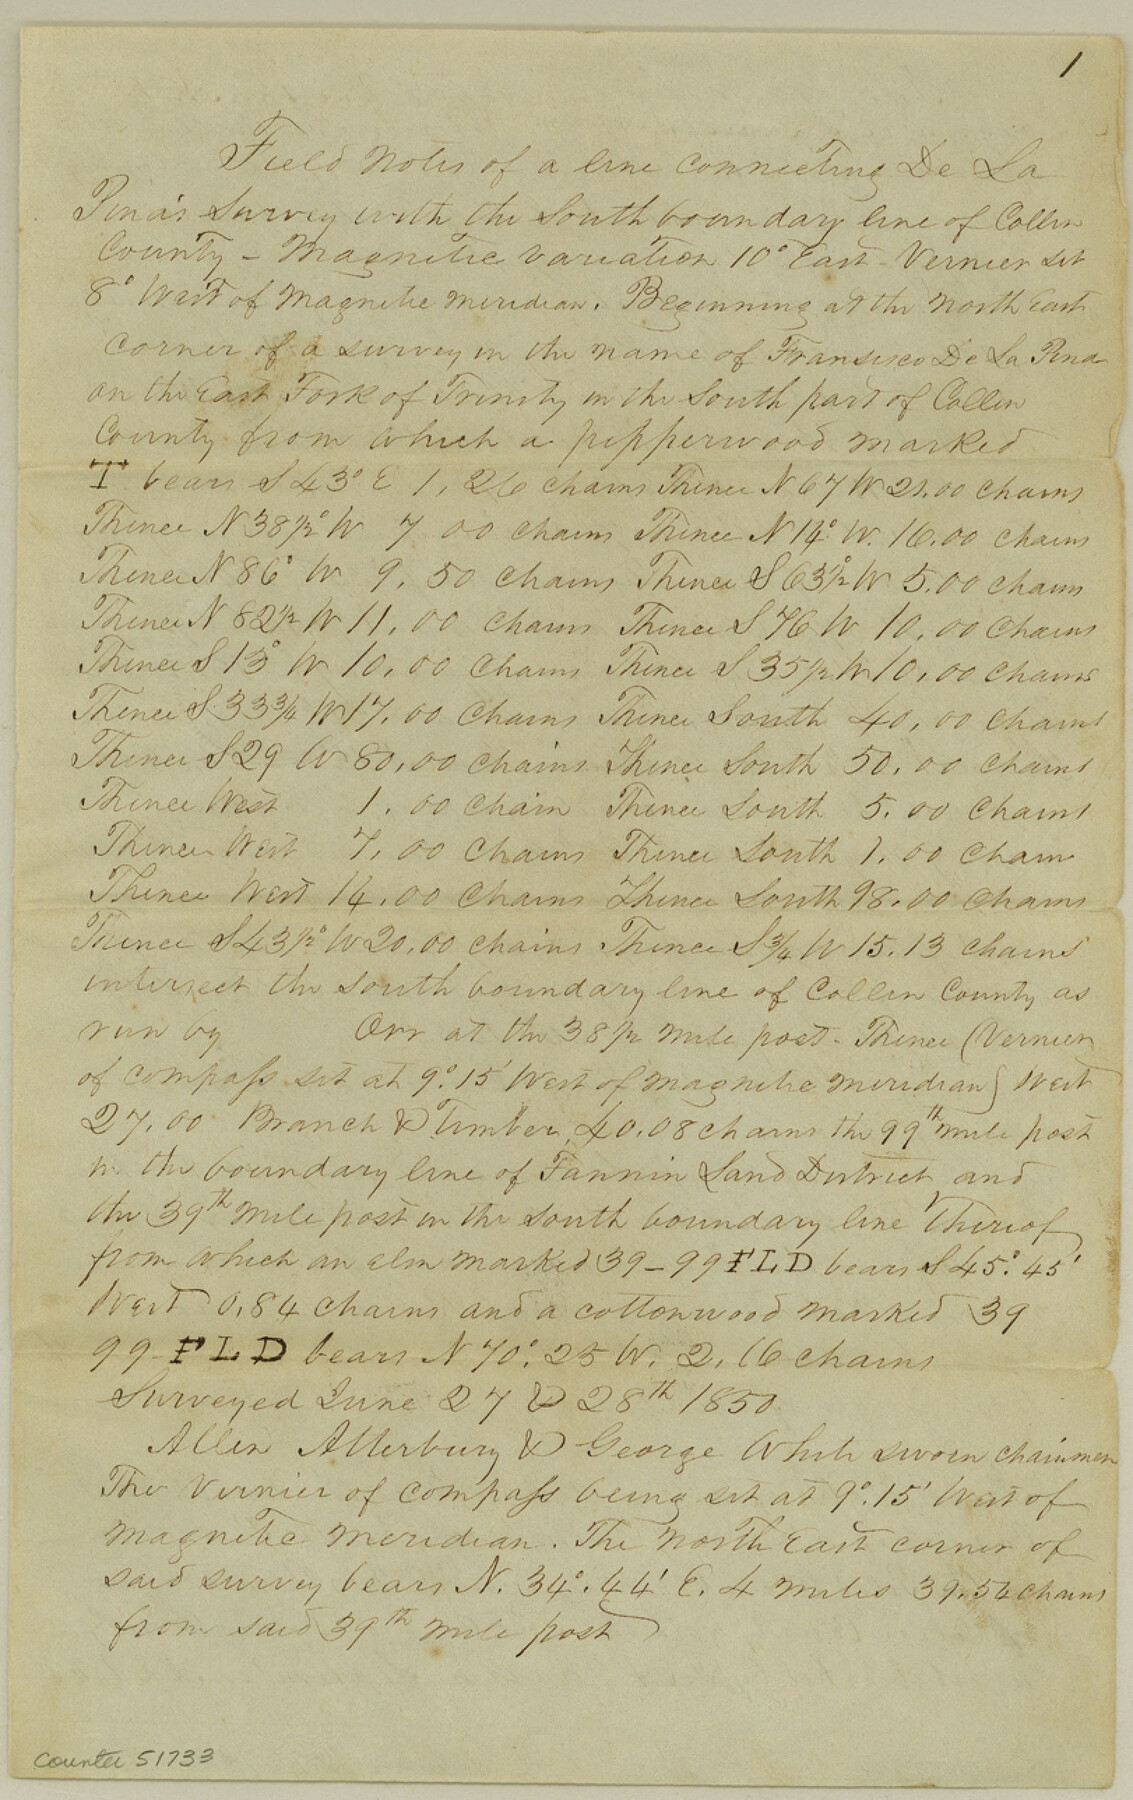 1
Field Notes of a line connecting De La
Pena's Survey with the South boundary line of Collin
County - Magnetic variation 10° East - Vernier set
8° West of Magnetic meridian. Beginning at the North East
corner of a survey in the name of Fransisco De La Pena
on the East Fork of Trinity in the South part of Collin
County from which a pepperwood marked
T bears S 43° E 1,26 chains Thence N 67 W 21.00 chains
Thence N 38½° W 7 00 chains Thence N 14° W. 16.00 chains
Thence N 86° W 9,50 chains Thence S 63½° W 5.00 chains
Thence N 82½ W 11,00 chains Thence S 76 W 10,00 chains
Thence S 13° W 10,00 chains Thence S 35½ W 10,00 chains
Thence S 33¾ W 17,00 chains Thence South 40,00 chains
Thence S 29 W 80,00 chains Thence South 50.00 chains
Thence West 1.00 chain Thence South 5.00 chains
Thence West 7,00 chains Thence South 1.00 chain
Thence West 14.00 chains Thence South 98.00 chains
Thence S 43½° W 20,00 chains Thence S ¾ W 15.13 chains
intersect the south boundary line of Collin County as
run by Orr at the 38½ mile post - Thence (Vernier
of compass set at 9°.15' West of Magnetic meridian) West
27,00 Branch & Timber, 40.08 chains the 99th mile post
in the boundary line of Fannin Land District and
the 39th mile post in the south boundary line thereof
from which an elm marked 39-99 FLD bears S 45°.45'
West 0,84 chains and a cottonwood marked 39
99-FLD bears N 70°.25 W. 2,16 chains
Surveyed June 27 & 28th 1850
Allen Atterbury & George White sworn chainmen
The Vernier of compass being set at 9°.15' West of
magnetic meridian. The North East corner of
said survey bears N. 34°.44' E. 4 miles 39.54 chains
from said 39th mile post
counter 51733